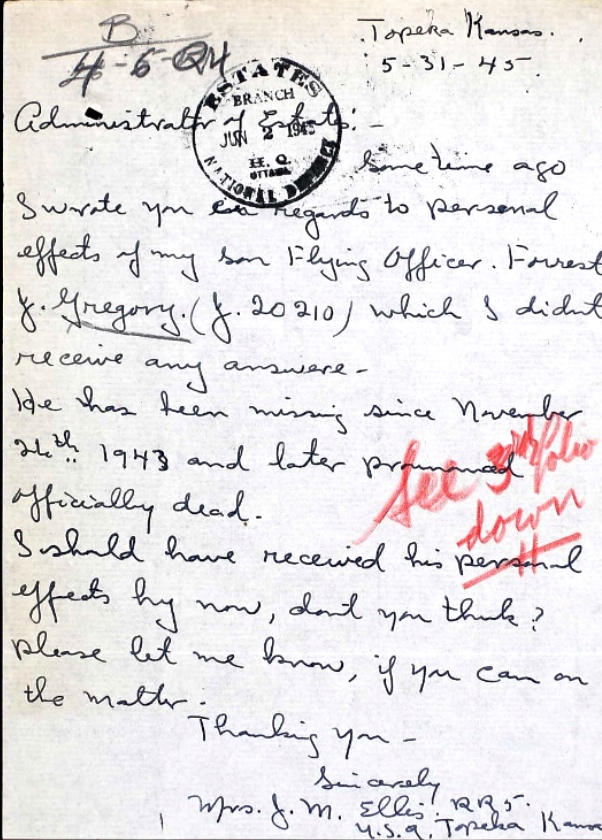 B
4-6-QH
Topeka Kansas.
5-31-45.
ESTATES
BRANCH
JUN 2 1945
H.Q.
OTTAWA
NATIONAL DEFENCE
Administrator of Estates:-
Sometime ago
I wrote you in regards to personal
effects of my son Flying Officer. Forrest
J. Gregory. (J. 20210) which I didnt
receive any answere-
He has been missing since November
26th 1943 and later pronounced
officially dead.
See 3rd folio
down
I should have received his personal
effects by now, don't you think?
Please let me know, if you can on
the matter.
Thanking you-
Sincerely
Mrs. J. M. Ellis, RR5.
U.S.A. Topeka Kansas